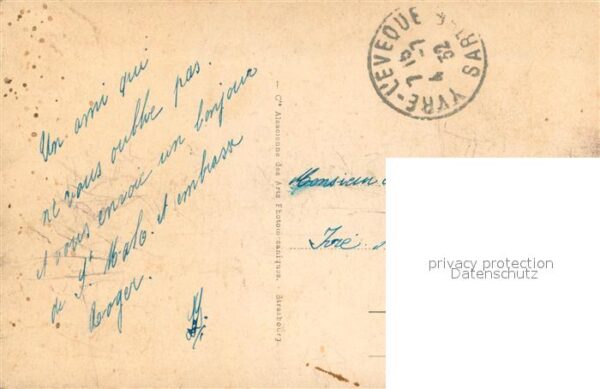 Un ami qui
ne vous oublie pas.
et vous envoie un bonjour
de St Malo. et embrasse
Roger.
YVRE-L'EVEQUE SARTHE
7 - 7
4
32
Cie Alsacienne des Arts Photomécaniques, Strasbourg.
Monsieur
Yvré
privacy protection
Datenschutz